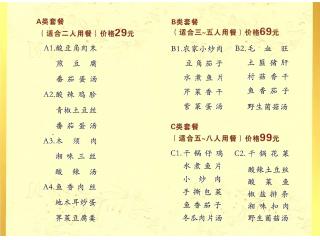 A类套餐
（适合二人用餐）价格29元
A1.酸豆角肉末
煎豆腐
番茄蛋汤
A2.酸辣鸡胗
青椒土豆丝
番茄蛋汤
A3.木须肉
湘味三丝
酸辣汤
A4.鱼香肉丝
地木耳炒蛋
荠菜豆腐羹
B类套餐
（适合三~五人用餐）价格69元
B1.农家小炒肉
豆角茄子
水煮鱼片
芹菜香干
紫菜蛋汤
B2.毛血旺
土匪猪肝
村菇香干
鱼香茄子
野生菌菇汤
C类套餐
（适合五~八人用餐）价格99元
C1.干锅仔鸡
水煮鱼片
小炒肉
手撕包菜
鱼香茄子
冬瓜肉片汤
C2.干锅花菜
酸辣土豆丝
酸菜鱼
油淋茄子
湘味扣肉
野生菌菇汤